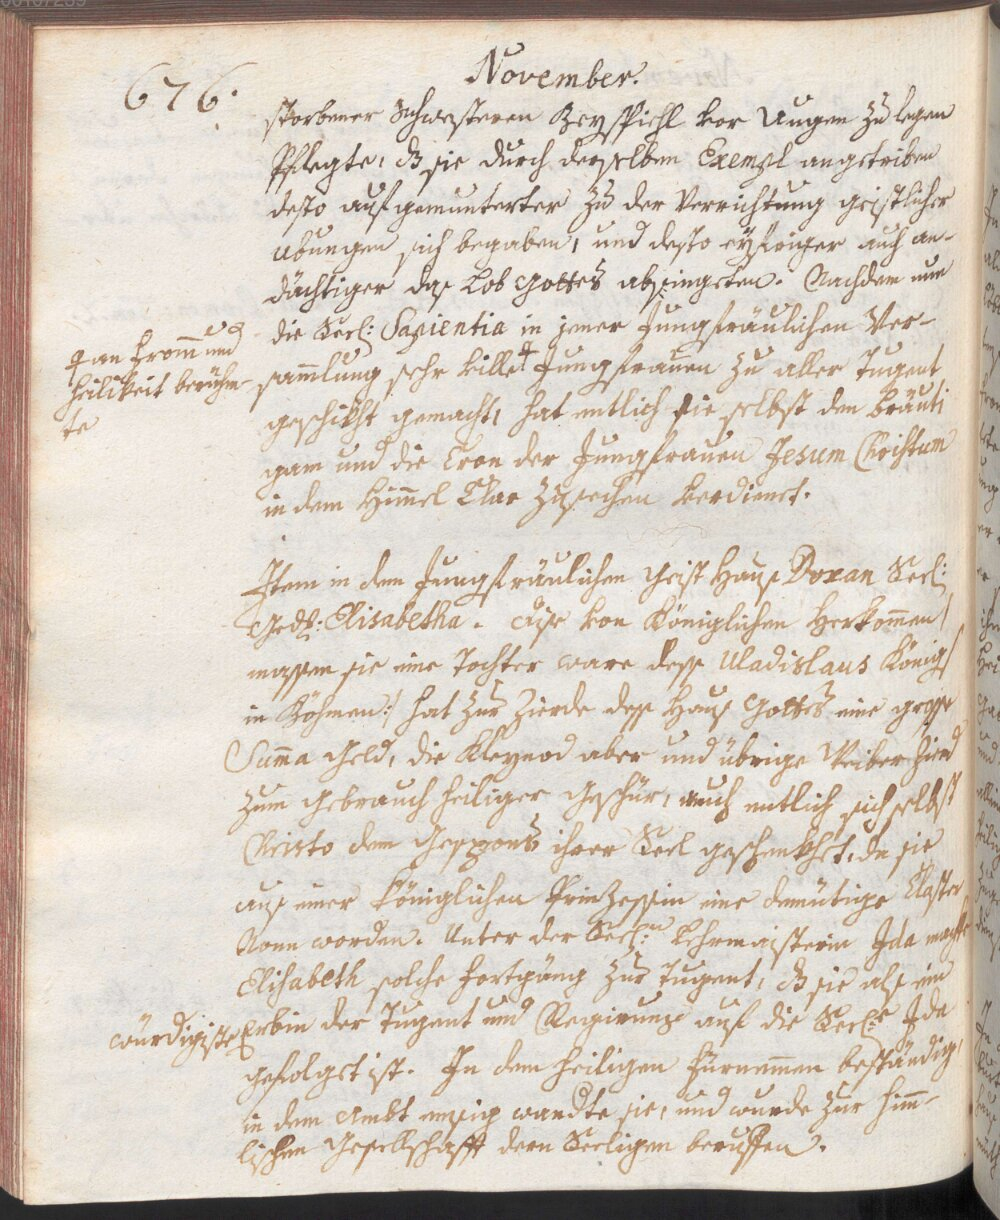 00107239
676.
November.
storbener Schwesteren Beyspihl vor Augen zu legen
Pflegte, dz sie durch derselben Exempl angetriben
desto aufgemunterter zu der Verrichtung geistlicher
übungen sich begaben, und desto eyfriger auch an-
dächtiger das Lob Gottes absingeten. Nachdem nun
die Seel: Sapientia in jener Jungfräulichen Ver-
samlung sehr ville ‡ Jungfrauen zu aller Tugent
‡ an From und
heilikeit berühm-
te
geschikht gemacht, hat entlich sie selbst den Bräuti
gam und die Cron der Jungfrauen Jesum Christum
in dem Himel Clar zusechen verdienet.
Item in dem Jungfräulichen Geist Hause Doxan Seel:
Gedt: Elisabetha. Dise von Königlichen Herkomen /
massen sie eine Tochter ware dess Uladislaus Königs
in Böhmen:/ hat zur Zierde dess Haus Gottes eine grosse
Summa Geld, die Kleynod aber und übrige Weiber Zierd
zum Gebrauch heiliger Geschür, auch entlich sich selbst
Christo dem Gespons ihrer Seel geschenkhet, da sie
aus einer Königlichen Prinzessin eine demütige Closter
Nonn worden. Unter der Seel:n Lehrmaisterin Ida machte
Elisabeth solche fortgäng zur Tugent, dz sie als ein
würdigiste Erbin der Tugent und Regirung auf die Seel:e Ida
gefolget ist. In dem heiligen fürnemen beständig,
in dem Ambt emsig wandte sie, und wurde zur him-
lischen Gesellschafft dern Seeligen beruffen.